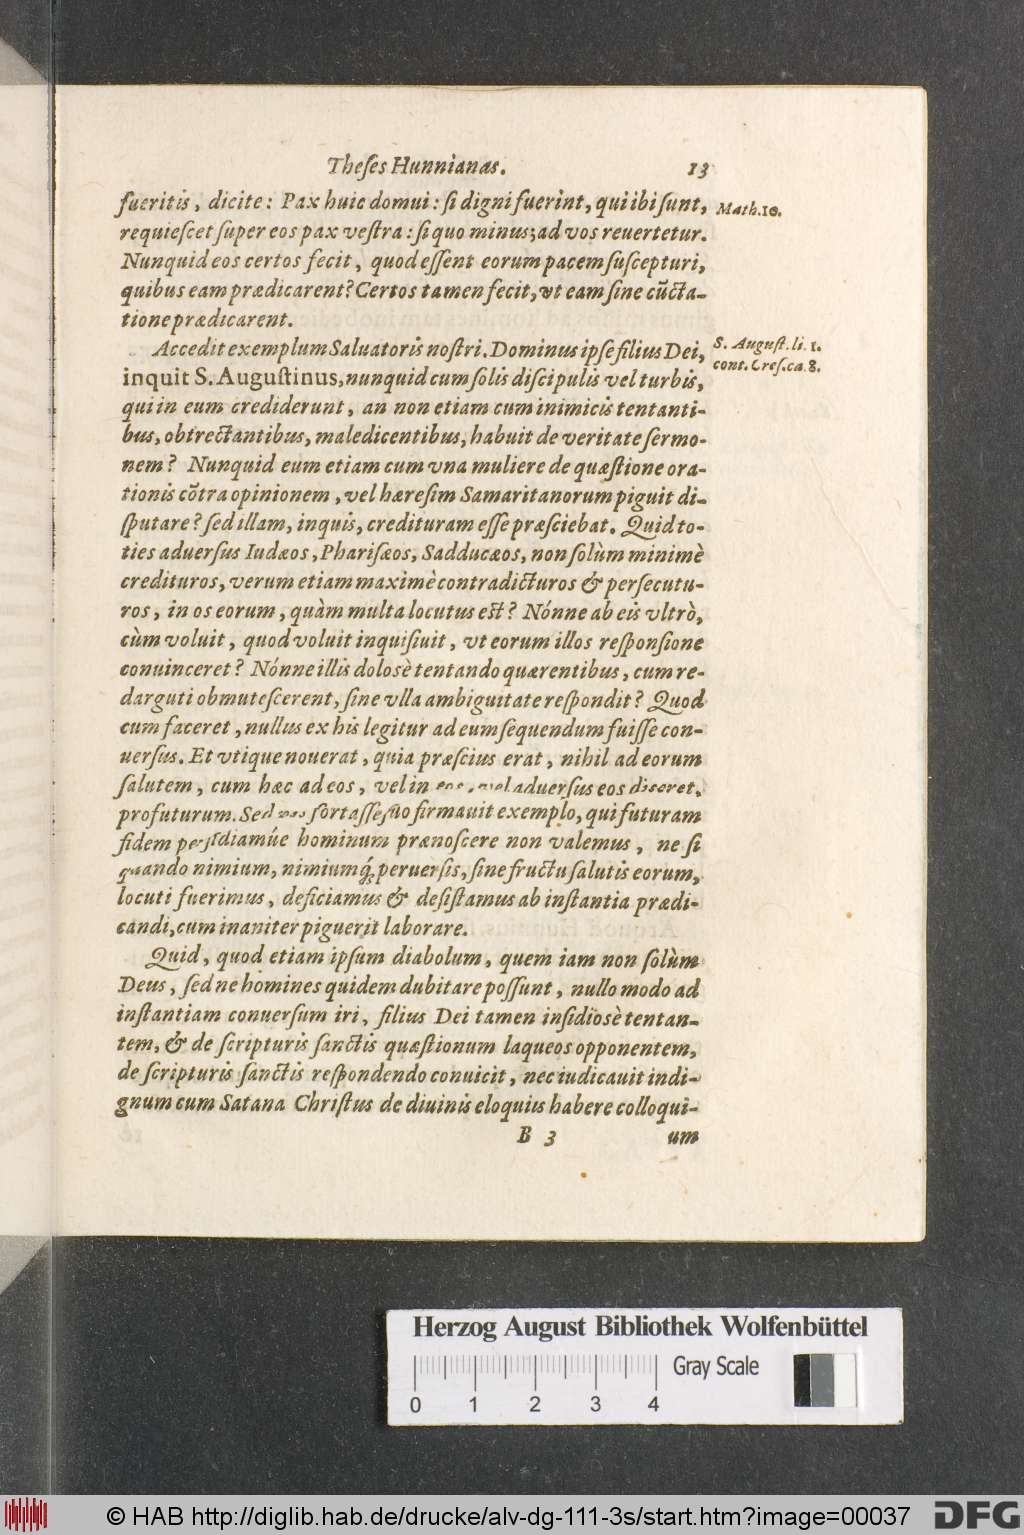 Theſes Hunnianas. 13
fueritis, dicite: Pax huic domui: ſi digni fuerint, qui ibi ſunt,
Math.10.
requieſcet ſuper eos pax veſtra: ſi quo minus; ad vos reuertetur.
Nunquid eos certos fecit, quod eſſent eorum pacem ſuſcepturi,
quibus eam prædicarent? Certos tamen fecit, vt eam ſine cūcta-
tione prædicarent.
Accedit exemplum Saluatoris noſtri. Dominus ipſe filius Dei,
S. Auguſt. li. 1.
cont. Creſ. ca. 8.
inquit S. Auguſtinus, nunquid cum ſolis diſcipulis vel turbis,
qui in eum crediderunt, an non etiam cum inimicis tentanti-
bus, obtrectantibus, maledicentibus, habuit de veritate ſermo-
nem? Nunquid eum etiam cum vna muliere de quæſtione ora-
tionis cōtra opinionem, vel hæreſim Samaritanorum piguit di-
ſputare? ſed illam, inquis, credituram eſſe præſciebat. Quid to-
ties aduerſus Iudæos, Phariſæos, Sadducæos, non ſolùm minimè
credituros, verum etiam maximè contradicturos & perſecutu-
ros, in os eorum, quàm multa locutus est? Nónne ab eis vltrò,
cùm voluit, quod voluit inquiſiuit, vt eorum illos reſponſione
conuinceret? Nónne illis dolosè tentando quærentibus, cum re-
darguti obmuteſcerent, ſine vlla ambiguitate reſpondit? Quod
cum faceret, nullus ex his legitur ad eum ſequendum fuiſſe con-
uerſus. Et vtique nouerat, quia præſcius erat, nihil ad eorum
ſalutem, cum hæc ad eos, vel in eos, vel aduerſus eos diceret,
profuturum. Sed nos fortaſſe ſuo firmauit exemplo, qui futuram
fidem perfidiamúe hominum prænoſcere non valemus, ne ſi
quando nimium, nimiumq́; peruerſis, ſine fructu ſalutis eorum,
locuti fuerimus, deficiamus & deſiſtamus ab inſtantia prædi-
candi, cum inaniter piguerit laborare.
Quid, quod etiam ipſum diabolum, quem iam non ſolùm
Deus, ſed ne homines quidem dubitare poſſunt, nullo modo ad
inſtantiam conuerſum iri, filius Dei tamen inſidiosè tentan-
tem, & de ſcripturis ſanctis quæſtionum laqueos opponentem,
de ſcripturis ſanctis reſpondendo conuicit, nec iudicauit indi-
gnum cum Satana Chriſtus de diuinis eloquiis habere colloqui-
B 3 um
Herzog August Bibliothek Wolfenbüttel
Gray Scale
0 1 2 3 4
© HAB http://diglib.hab.de/drucke/alv-dg-111-3s/start.htm?image=00037
DFG